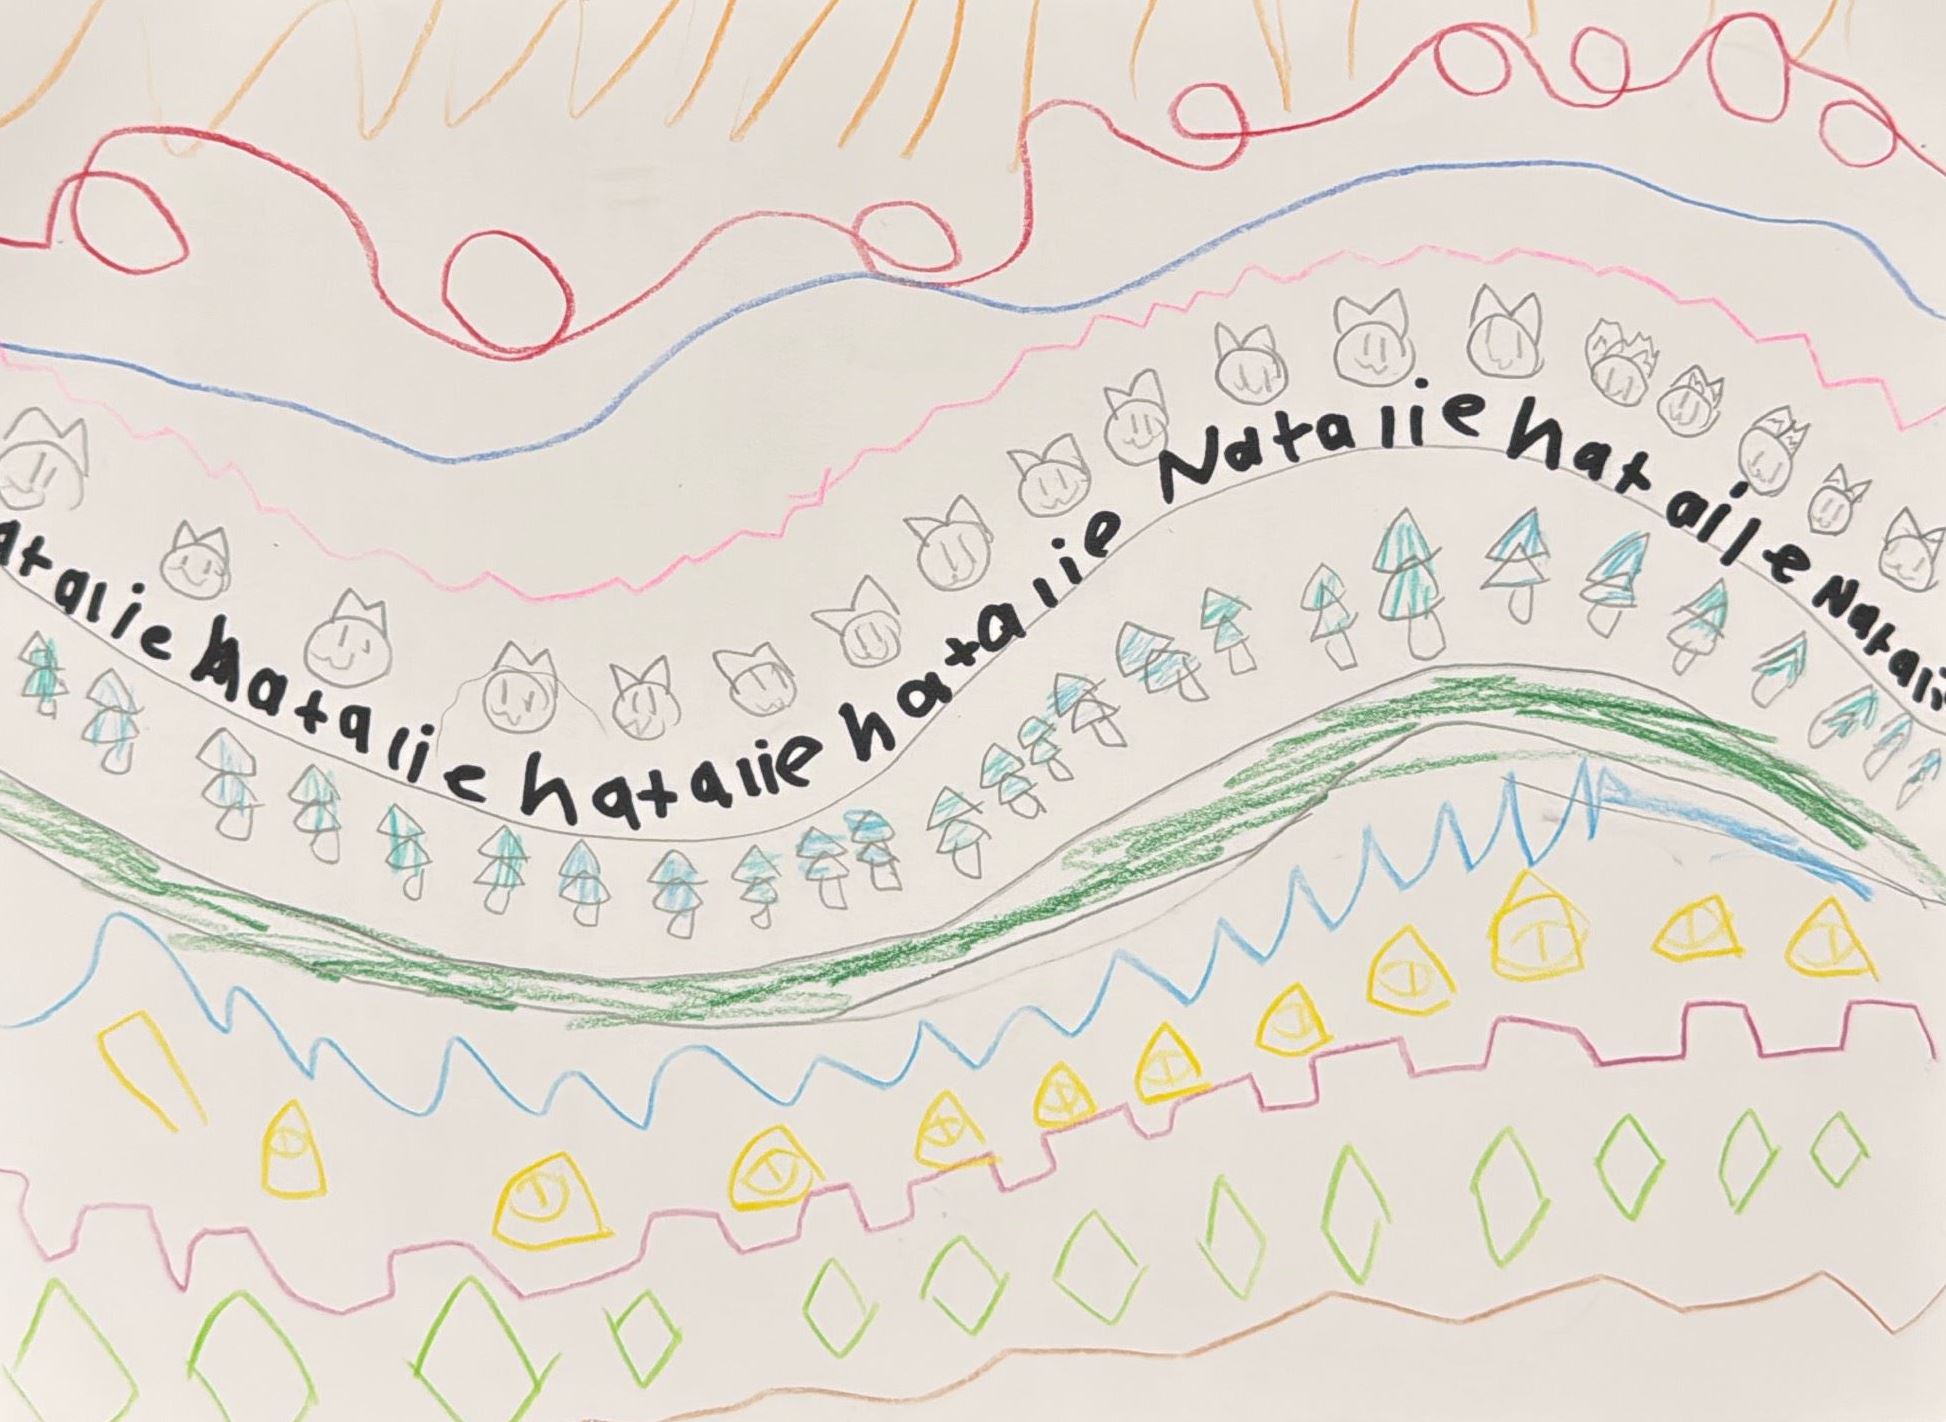 atalie Natalie hatalie hatalie Natalie hataile Natali